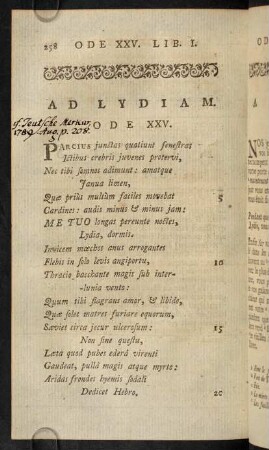 258 ODE XXV. LIB. I.
AD LYDIAM.
cf. Teutsche Merkur,
1789, Aug. p. 208.
ODE XXV.
PARCIUS junctas quatiunt fenestras
Ictibus crebris juvenes protervi,
Nec tibi somnos adimunt: amatque
Janua limen,
Quæ priùs multùm faciles movebat 5
Cardines: audis minùs & minùs jam:
ME TUO longas pereunte noctes,
Lydia, dormis.
Invicem mœchos anus arrogantes
Flebis in solo levis angiportu, 10
Thracio bacchante magis sub inter-
-lunia vento:
Quum tibi flagrans amor, & libido,
Quæ solet matres furiare equorum,
Sæviet circa jecur ulcerosum: 15
Non sine questu,
Læta quod pubes ederâ virenti
Gaudeat, pullâ magis atque myrto:
Aridas frondes hyemis sodali
Dedicet Hebro. 20